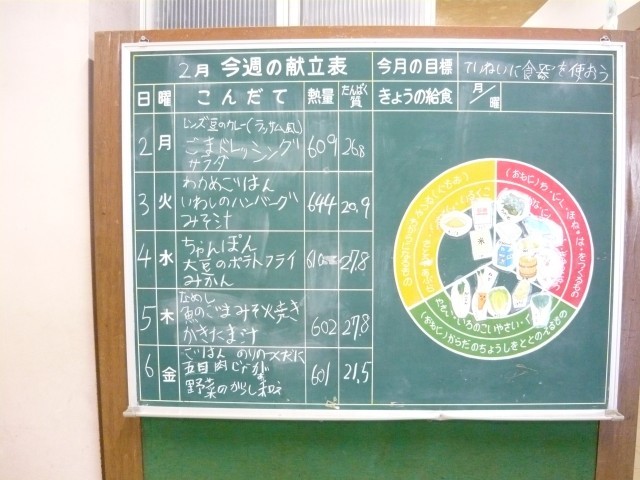 2月 今週の献立表
今月の目標 ていねいに食器を使おう
日 曜 こんだて 熱量 たんぱく質
きょうの給食 月/曜
2 月 レンズ豆のカレー(ラッサム風)
ごまドレッシング
サラダ
609 26.8
3 火 わかめごはん
いわしのハンバーグ
みそ汁
644 20.9
4 水 ちゃんぽん
大豆のポテトフライ
みかん
610 27.8
5 木 なめし
魚のごまみそ焼き
かきたま汁
602 27.8
6 金 ごはん のりのつくだに
五目肉じゃが
野菜のからし和え
601 21.5
米